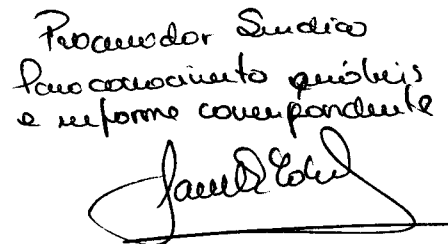 Procurador Sindico
Para conocimiento análisis
e informe correspondiente